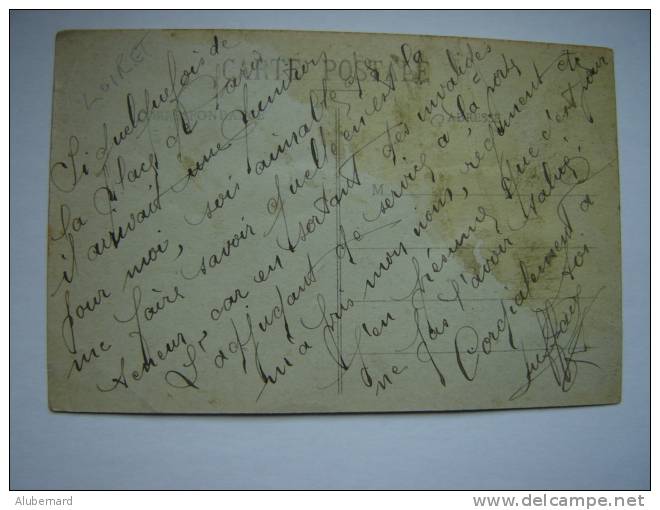 LOIRET
CARTE POSTALE
CORRESPONDANCE
ADRESSE
M
Si quelquefois de
la Place de Paris
il arrivait une punition
pour moi, sois aimable de
me faire savoir quelle en est la
teneur, car en sortant des invalides
L'adjudant de service à la porte
m'a pris mon nom, régiment etc
J'en présume que c'est pour
ne pas l'avoir salué.
Cordialement à
toi
Alubernard
delcampe.net